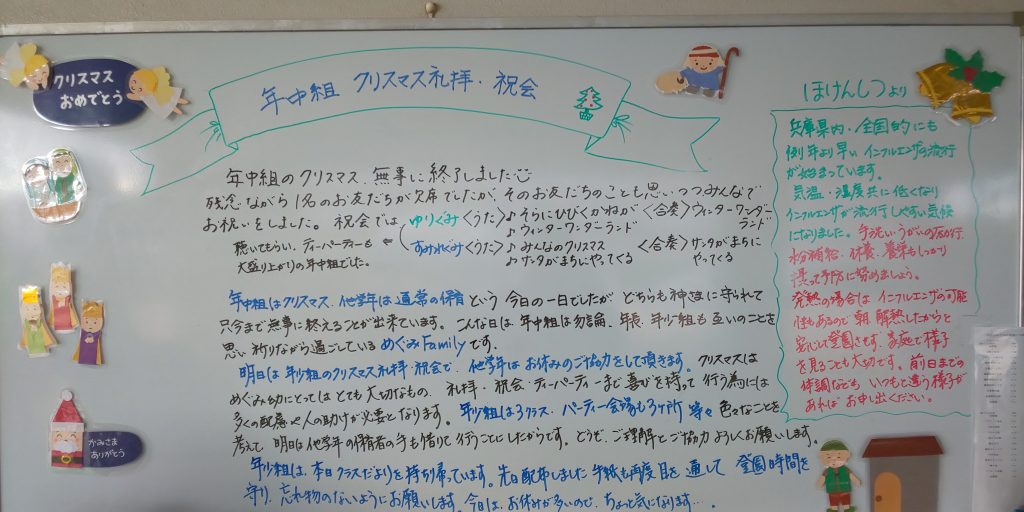 クリスマス
おめでとう
年中組 クリスマス礼拝・祝会
年中組のクリスマス、無事に終了しました
残念ながら1名のお友だちが欠席でしたが、そのお友だちのことも思いつつみんなで
お祝いをしました。祝会では ゆりぐみ〈うた〉♪そらにひびくかねが〈合奏〉ウィンターワンダーランド
♪ウィンターワンダーランド
聴いてもらい、ティーパーティーも
すみれぐみ〈うた〉♪みんなのクリスマス〈合奏〉サンタがまちにやってくる
大盛り上がりの年中組でした。
♪サンタがまちにやってくる
年中組はクリスマス、他学年は通常の保育という今日の一日でしたが どちらも神さまに守られて
只今まで無事に終えることが出来ています。こんな日は、年中組は勿論、年長、年少組も互いのことを
思い祈りながら過ごしているめぐみFamilyです。
明日は年少組のクリスマス礼拝・祝会で、他学年はお休みのご協力をして頂きます。クリスマスは
めぐみ幼にとってはとても大切なもの、礼拝・祝会・ティーパーティーまで喜びを持って行う為には
多くの配慮や人の助けが必要となります。年少組は3クラス、パーティー会場も3ヶ所 等々 色々なことを
考えて 明日は他学年の保育者の手も借りて行うことにしたからです。どうぞ、ご理解とご協力よろしくお願いします。
年少組は、本日クラスだよりを持ち帰っています。先日配布しました手紙も再度目を通して 登園時間を
守り、忘れ物のないようにお願いします。今日は、お休みが多いので、ちょっと気になります…
ほけんしつより
兵庫県内・全国的にも
例年より早いインフルエンザの流行
が始まっています。
気温・湿度共に低くなり
インフルエンザが流行しやすい気候
になりました。手洗い・うがいの励行、
水分補給、休養、栄養もしっかり
摂って予防に努めましょう。
発熱の場合はインフルエンザの可能
性もあるので 朝、解熱したからと
安心して登園させず、家庭で様子
を見ることも大切です。前日までの
体調なども いつもと違う様子が
あれば お申し出ください。
かみさま
ありがとう